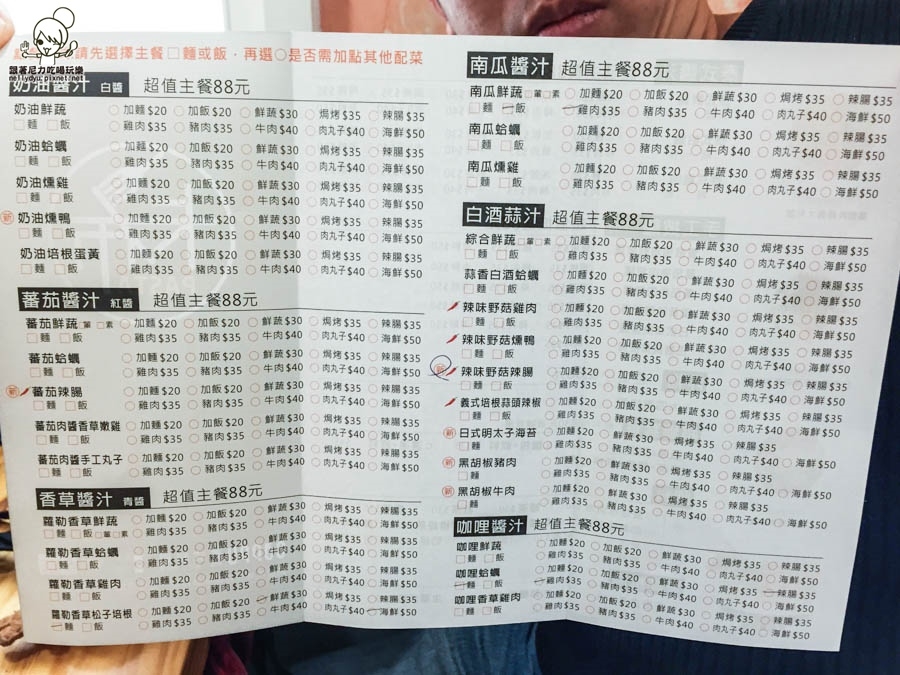 跟著尼力吃喝玩樂
nellydyu.pixnet.net
請先選擇主餐 □ 麵或飯，再選○是否需加點其他配菜
奶油醬汁 白醬 超值主餐88元
奶油鮮蔬 ○ 加麵$20 ○ 加飯$20 ○ 鮮蔬$30 ○ 焗烤$35 ○ 辣腸$35
□ 麵 □ 飯 ○ 雞肉$35 ○ 豬肉$35 ○ 牛肉$40 ○ 肉丸子$40 ○ 海鮮$50
奶油蛤蠣 ○ 加麵$20 ○ 加飯$20 ○ 鮮蔬$30 ○ 焗烤$35 ○ 辣腸$35
□ 麵 □ 飯 ○ 雞肉$35 ○ 豬肉$35 ○ 牛肉$40 ○ 肉丸子$40 ○ 海鮮$50
奶油燻雞 ○ 加麵$20 ○ 加飯$20 ○ 鮮蔬$30 ○ 焗烤$35 ○ 辣腸$35
□ 麵 □ 飯 ○ 雞肉$35 ○ 豬肉$35 ○ 牛肉$40 ○ 肉丸子$40 ○ 海鮮$50
新 奶油燻鴨 ○ 加麵$20 ○ 加飯$20 ○ 鮮蔬$30 ○ 焗烤$35 ○ 辣腸$35
□ 麵 □ 飯 ○ 雞肉$35 ○ 豬肉$35 ○ 牛肉$40 ○ 肉丸子$40 ○ 海鮮$50
奶油培根蛋黃 ○ 加麵$20 ○ 加飯$20 ○ 鮮蔬$30 ○ 焗烤$35 ○ 辣腸$35
□ 麵 □ 飯 ○ 雞肉$35 ○ 豬肉$35 ○ 牛肉$40 ○ 肉丸子$40 ○ 海鮮$50
蕃茄醬汁 紅醬 超值主餐88元
蕃茄鮮蔬 □ 葷 □ 素 ○ 加麵$20 ○ 加飯$20 ○ 鮮蔬$30 ○ 焗烤$35 ○ 辣腸$35
□ 麵 □ 飯 ○ 雞肉$35 ○ 豬肉$35 ○ 牛肉$40 ○ 肉丸子$40 ○ 海鮮$50
蕃茄蛤蠣 ○ 加麵$20 ○ 加飯$20 ○ 鮮蔬$30 ○ 焗烤$35 ○ 辣腸$35
□ 麵 □ 飯 ○ 雞肉$35 ○ 豬肉$35 ○ 牛肉$40 ○ 肉丸子$40 ○ 海鮮$50
新 蕃茄辣腸 ○ 加麵$20 ○ 加飯$20 ○ 鮮蔬$30 ○ 焗烤$35 ○ 辣腸$35
□ 麵 □ 飯 ○ 雞肉$35 ○ 豬肉$35 ○ 牛肉$40 ○ 肉丸子$40 ○ 海鮮$50
蕃茄肉醬香草嫩雞 ○ 加麵$20 ○ 加飯$20 ○ 鮮蔬$30 ○ 焗烤$35 ○ 辣腸$35
□ 麵 □ 飯 ○ 雞肉$35 ○ 豬肉$35 ○ 牛肉$40 ○ 肉丸子$40 ○ 海鮮$50
蕃茄肉醬手工丸子 ○ 加麵$20 ○ 加飯$20 ○ 鮮蔬$30 ○ 焗烤$35 ○ 辣腸$35
□ 麵 □ 飯 ○ 雞肉$35 ○ 豬肉$35 ○ 牛肉$40 ○ 肉丸子$40 ○ 海鮮$50
香草醬汁 青醬 超值主餐88元
蘿勒香草鮮蔬 ○ 加麵$20 ○ 加飯$20 ○ 鮮蔬$30 ○ 焗烤$35 ○ 辣腸$35
□ 麵 □ 飯 □ 葷 □ 素 ○ 雞肉$35 ○ 豬肉$35 ○ 牛肉$40 ○ 肉丸子$40 ○ 海鮮$50
蘿勒香草蛤蠣 ○ 加麵$20 ○ 加飯$20 ○ 鮮蔬$30 ○ 焗烤$35 ○ 辣腸$35
□ 麵 □ 飯 ○ 雞肉$35 ○ 豬肉$35 ○ 牛肉$40 ○ 肉丸子$40 ○ 海鮮$50
蘿勒香草雞肉 ○ 加麵$20 ○ 加飯$20 ○ 鮮蔬$30 ○ 焗烤$35 ○ 辣腸$35
□ 麵 □ 飯 ○ 雞肉$35 ○ 豬肉$35 ○ 牛肉$40 ○ 肉丸子$40 ○ 海鮮$50
蘿勒香草松子培根 ○ 加麵$20 ○ 加飯$20 ○ 鮮蔬$30 ○ 焗烤$35 ○ 辣腸$35
□ 麵 □ 飯 ○ 雞肉$35 ○ 豬肉$35 ○ 牛肉$40 ○ 肉丸子$40 ○ 海鮮$50
南瓜醬汁 超值主餐88元
南瓜鮮蔬 □ 葷 □ 素 ○ 加麵$20 ○ 加飯$20 ○ 鮮蔬$30 ○ 焗烤$35 ○ 辣腸$35
□ 麵 □ 飯 ○ 雞肉$35 ○ 豬肉$35 ○ 牛肉$40 ○ 肉丸子$40 ○ 海鮮$50
南瓜蛤蠣 ○ 加麵$20 ○ 加飯$20 ○ 鮮蔬$30 ○ 焗烤$35 ○ 辣腸$35
□ 麵 □ 飯 ○ 雞肉$35 ○ 豬肉$35 ○ 牛肉$40 ○ 肉丸子$40 ○ 海鮮$50
南瓜燻雞 ○ 加麵$20 ○ 加飯$20 ○ 鮮蔬$30 ○ 焗烤$35 ○ 辣腸$35
□ 麵 □ 飯 ○ 雞肉$35 ○ 豬肉$35 ○ 牛肉$40 ○ 肉丸子$40 ○ 海鮮$50
白酒蒜汁 超值主餐88元
綜合鮮蔬 □ 葷 □ 素 ○ 加麵$20 ○ 加飯$20 ○ 鮮蔬$30 ○ 焗烤$35 ○ 辣腸$35
□ 麵 □ 飯 ○ 雞肉$35 ○ 豬肉$35 ○ 牛肉$40 ○ 肉丸子$40 ○ 海鮮$50
蒜香白酒蛤蠣 ○ 加麵$20 ○ 加飯$20 ○ 鮮蔬$30 ○ 焗烤$35 ○ 辣腸$35
□ 麵 □ 飯 ○ 雞肉$35 ○ 豬肉$35 ○ 牛肉$40 ○ 肉丸子$40 ○ 海鮮$50
辣味野菇雞肉 ○ 加麵$20 ○ 加飯$20 ○ 鮮蔬$30 ○ 焗烤$35 ○ 辣腸$35
□ 麵 □ 飯 ○ 雞肉$35 ○ 豬肉$35 ○ 牛肉$40 ○ 肉丸子$40 ○ 海鮮$50
辣味野菇燻鴨 ○ 加麵$20 ○ 加飯$20 ○ 鮮蔬$30 ○ 焗烤$35 ○ 辣腸$35
□ 麵 □ 飯 ○ 雞肉$35 ○ 豬肉$35 ○ 牛肉$40 ○ 肉丸子$40 ○ 海鮮$50
新 辣味野菇辣腸 ○ 加麵$20 ○ 加飯$20 ○ 鮮蔬$30 ○ 焗烤$35 ○ 辣腸$35
□ 麵 □ 飯 ○ 雞肉$35 ○ 豬肉$35 ○ 牛肉$40 ○ 肉丸子$40 ○ 海鮮$50
義式培根蒜頭辣椒 ○ 加麵$20 ○ 加飯$20 ○ 鮮蔬$30 ○ 焗烤$35 ○ 辣腸$35
□ 麵 □ 飯 ○ 雞肉$35 ○ 豬肉$35 ○ 牛肉$40 ○ 肉丸子$40 ○ 海鮮$50
新 日式明太子海苔 ○ 加麵$20 ○ 加飯$20 ○ 鮮蔬$30 ○ 焗烤$35 ○ 辣腸$35
□ 麵 □ 飯 ○ 雞肉$35 ○ 豬肉$35 ○ 牛肉$40 ○ 肉丸子$40 ○ 海鮮$50
新 黑胡椒豬肉 ○ 加麵$20 ○ 加飯$20 ○ 鮮蔬$30 ○ 焗烤$35 ○ 辣腸$35
□ 麵 ○ 雞肉$35 ○ 豬肉$35 ○ 牛肉$40 ○ 肉丸子$40 ○ 海鮮$50
新 黑胡椒牛肉 ○ 加麵$20 ○ 加飯$20 ○ 鮮蔬$30 ○ 焗烤$35 ○ 辣腸$35
□ 麵 ○ 雞肉$35 ○ 豬肉$35 ○ 牛肉$40 ○ 肉丸子$40 ○ 海鮮$50
咖哩醬汁 超值主餐88元
咖哩鮮蔬 ○ 加麵$20 ○ 加飯$20 ○ 鮮蔬$30 ○ 焗烤$35 ○ 辣腸$35
□ 麵 □ 飯 ○ 雞肉$35 ○ 豬肉$35 ○ 牛肉$40 ○ 肉丸子$40 ○ 海鮮$50
咖哩蛤蠣 ○ 加麵$20 ○ 加飯$20 ○ 鮮蔬$30 ○ 焗烤$35 ○ 辣腸$35
□ 麵 □ 飯 ○ 雞肉$35 ○ 豬肉$35 ○ 牛肉$40 ○ 肉丸子$40 ○ 海鮮$50
咖哩香草雞肉 ○ 加麵$20 ○ 加飯$20 ○ 鮮蔬$30 ○ 焗烤$35 ○ 辣腸$35
□ 麵 □ 飯 ○ 雞肉$35 ○ 豬肉$35 ○ 牛肉$40 ○ 肉丸子$40 ○ 海鮮$50